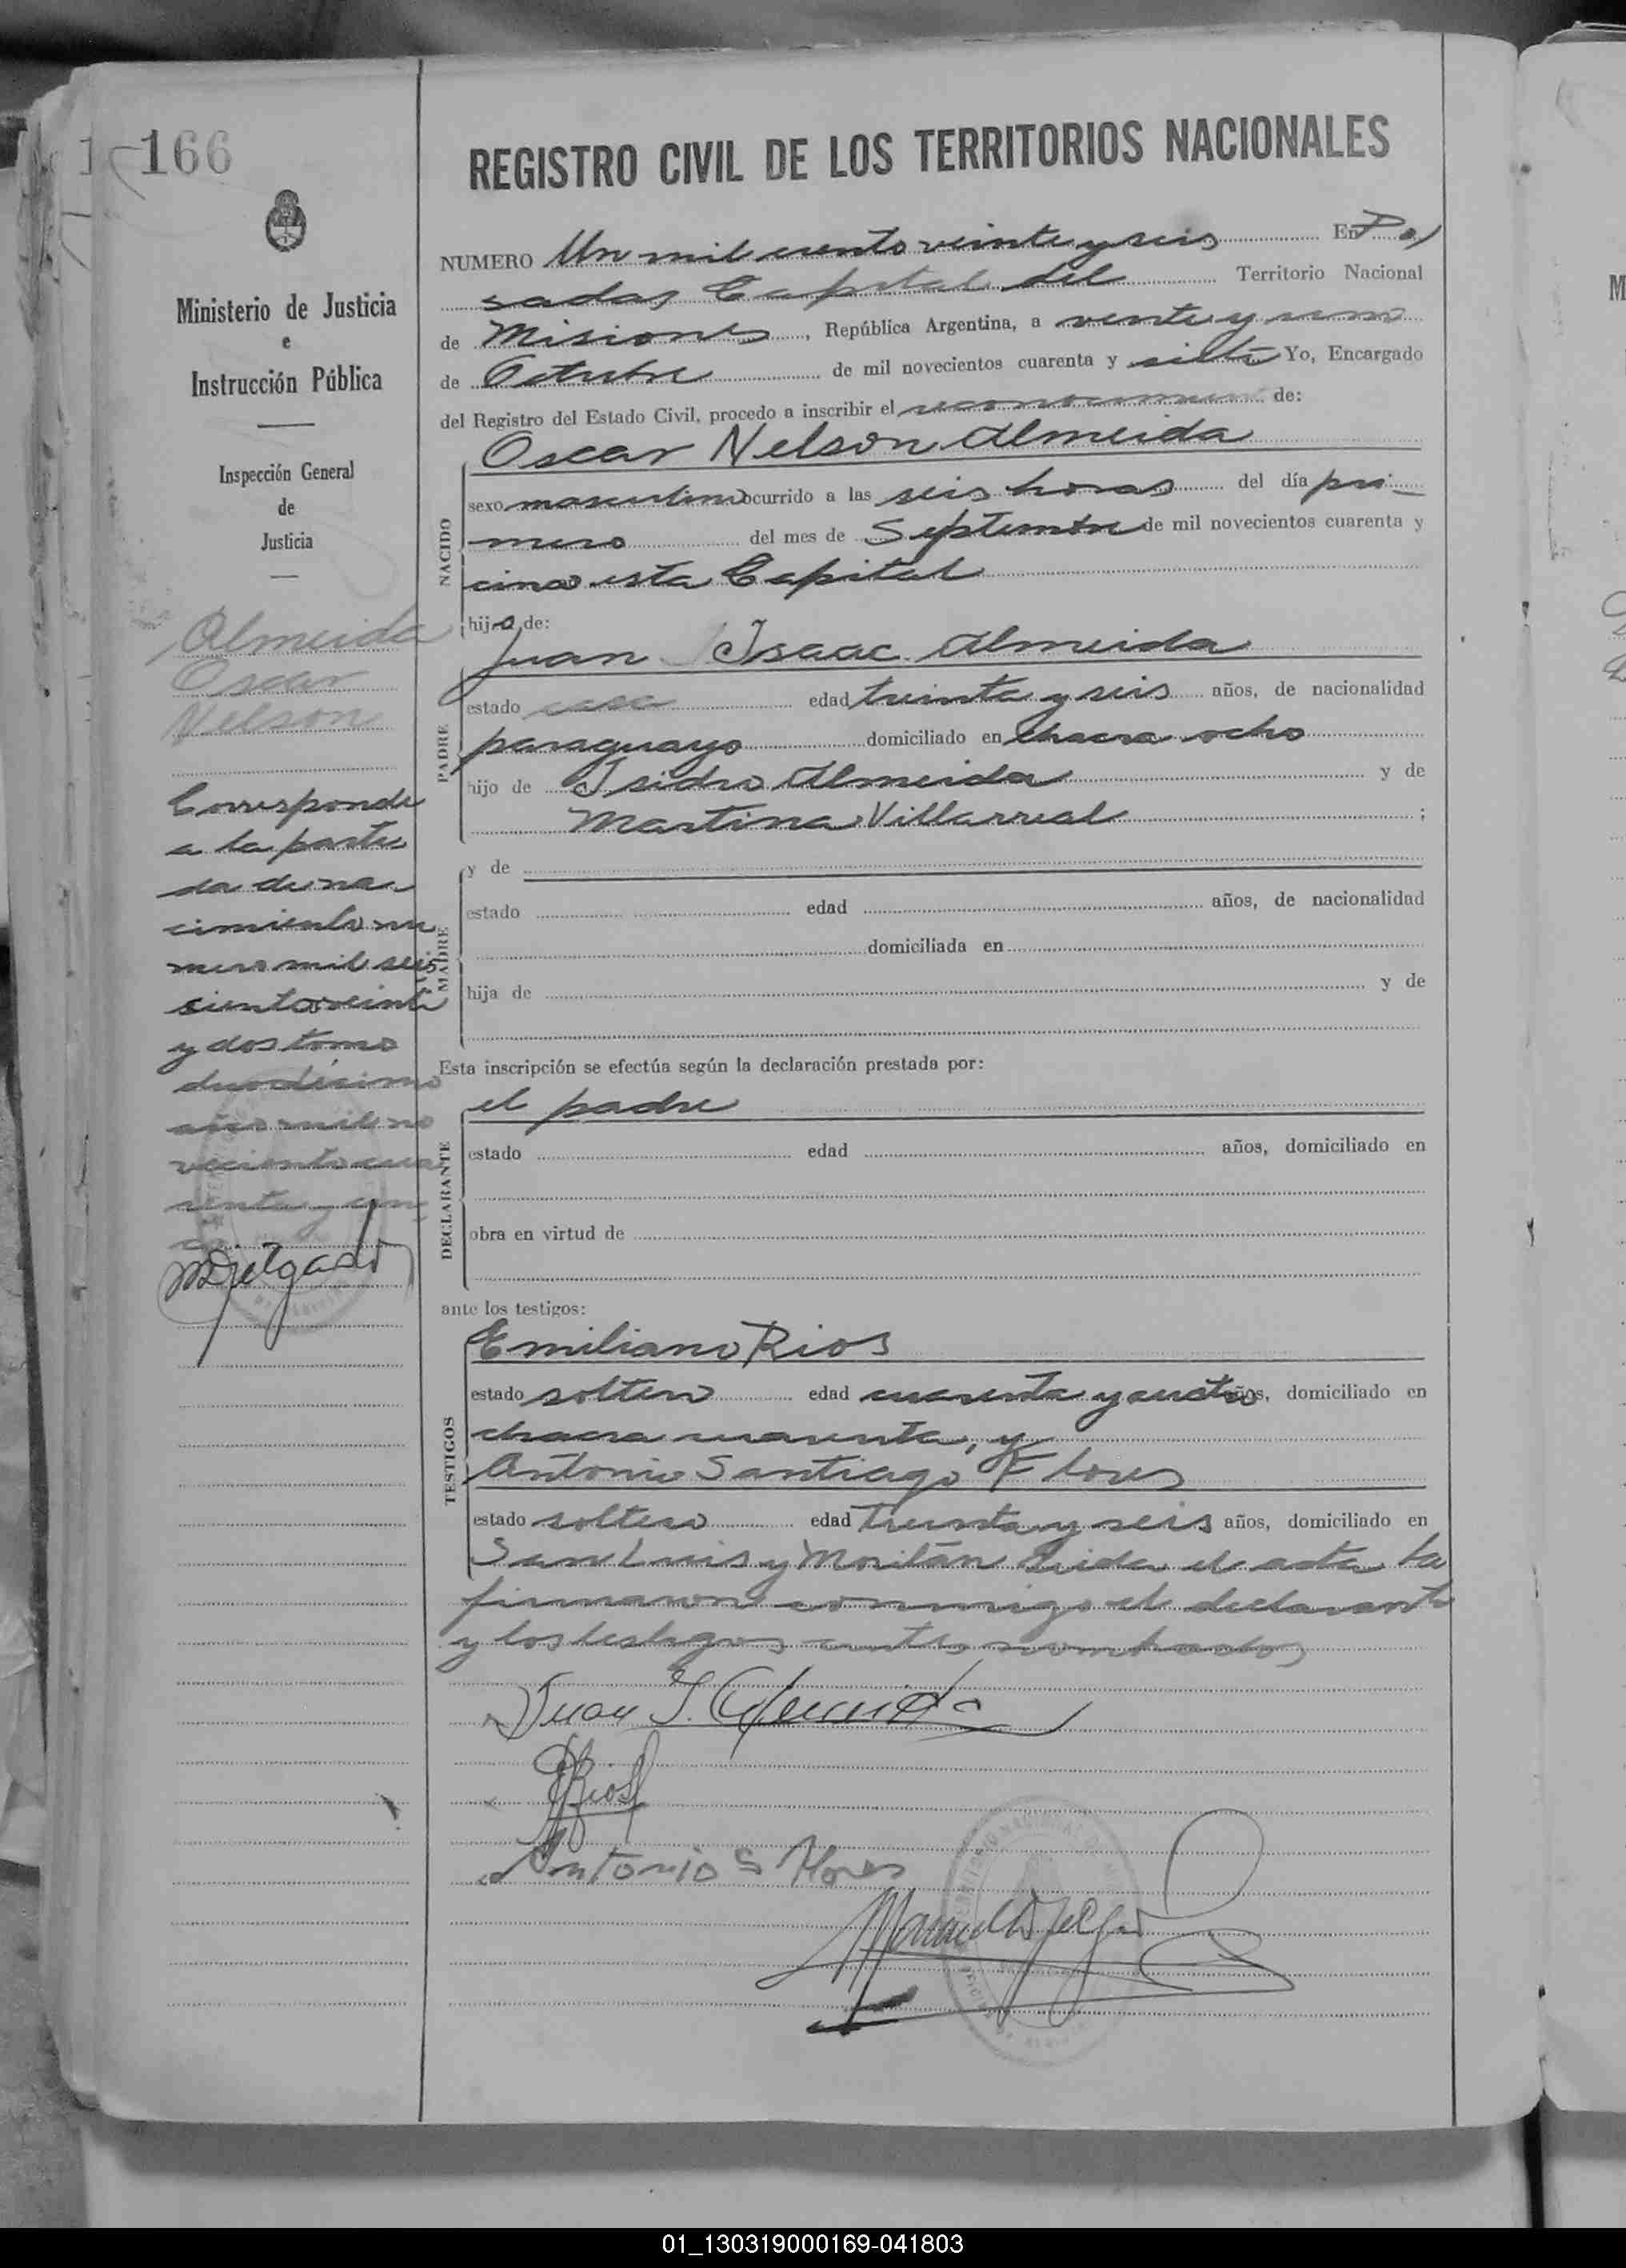 166
REGISTRO CIVIL DE LOS TERRITORIOS NACIONALES
Ministerio de Justicia
e
Instrucción Pública
Inspección General
de
Justicia
NUMERO Un mil ciento veinte y seis En Po
sadas Capital del Territorio Nacional
de Misiones, República Argentina, a veinte y uno
de Octubre de mil novecientos cuarenta y siete Yo, Encargado
del Registro del Estado Civil, procedo a inscribir el reconocimien de:
NACIDO
Oscar Nelson Almeida
sexo masculino ocurrido a las seis horas del día pri-
mero del mes de Septiembre de mil novecientos cuarenta y
cinco esta Capital
hijo de:
PADRE
Juan Isaac Almeida
estado casa edad treinta y seis años, de nacionalidad
paraguayo domiciliado en chacra ocho
hijo de Isidro Almeida y de
Martina Villarreal ;
MADRE
y de
estado edad años, de nacionalidad
domiciliada en
hija de y de
Esta inscripción se efectúa según la declaración prestada por:
DECLARANTE
el padre
estado edad años, domiciliado en
obra en virtud de
ante los testigos:
TESTIGOS
Emiliano Rios
estado soltero edad cuarenta y cuatro años, domiciliado en
chacra cuarenta, y
Antonio Santiago Flores
estado soltero edad treinta y seis años, domiciliado en
San Luis y Moritán Leida el acta la
firmaron conmigo el declarante
y los testigos antes nombrados
Juan I. Almeida
ERios
Antonio S Flores
Manuel Delgado
Almeida
Oscar
Nelson
Corresponde
a la parti
da de na
cimiento nu
mero mil seis
siento veinti
y dos tomo
duodécimo
año mil no
veciento cua
renta y cin
co
MDelgado
01_130319000169-041803